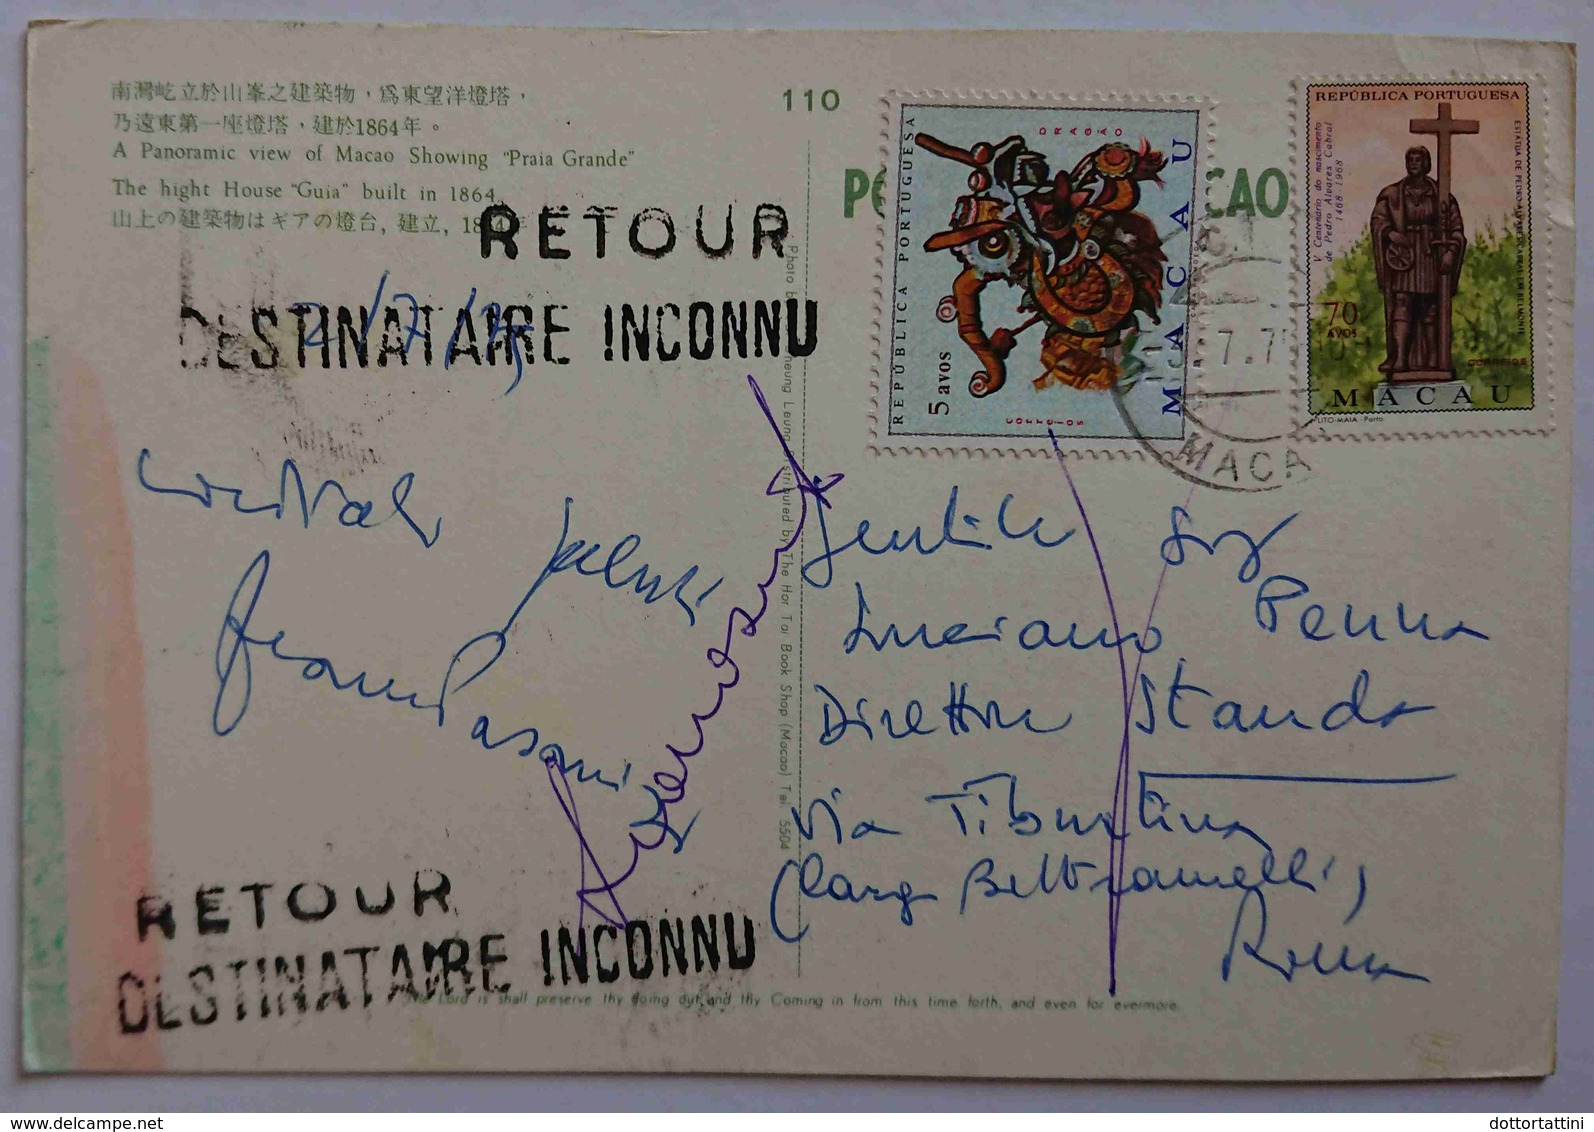 南灣屹立於山峯之建築物，爲東望洋燈塔，
乃遠東第一座燈塔，建於1864年。
A Panoramic view of Macao Showing "Praia Grande"
The hight House "Guia" built in 1864
山上の建築物はギアの燈台, 建立, 1864年
110
RETOUR
DESTINATAIRE INCONNU
2/7/75
Cordiali
Saluti
Gentile Sig
Luciano Penna
Direttore Standa
Via Tiburtina
(Largo Beltramelli),
Roma
RETOUR
DESTINATAIRE INCONNU
Lord is shall preserve thy going out and thy Coming in from this time forth, and even for evermore.
distributed by The Hor Tai Book Shop (Macao) Tel. 5504
REPÚBLICA PORTUGUESA
DRAGÃO
MACAU
5 avos
CORREIOS
REPÚBLICA PORTUGUESA
V Centenário do nascimento
de Pedro Álvares Cabral
1468-1968
ESTÁTUA DE PEDRO ÁLVARES CABRAL EM BELMONTE
70
AVOS
CORREIOS
MACAU
LITO-MAIA - Porto
7.75
MACA
dottortattini